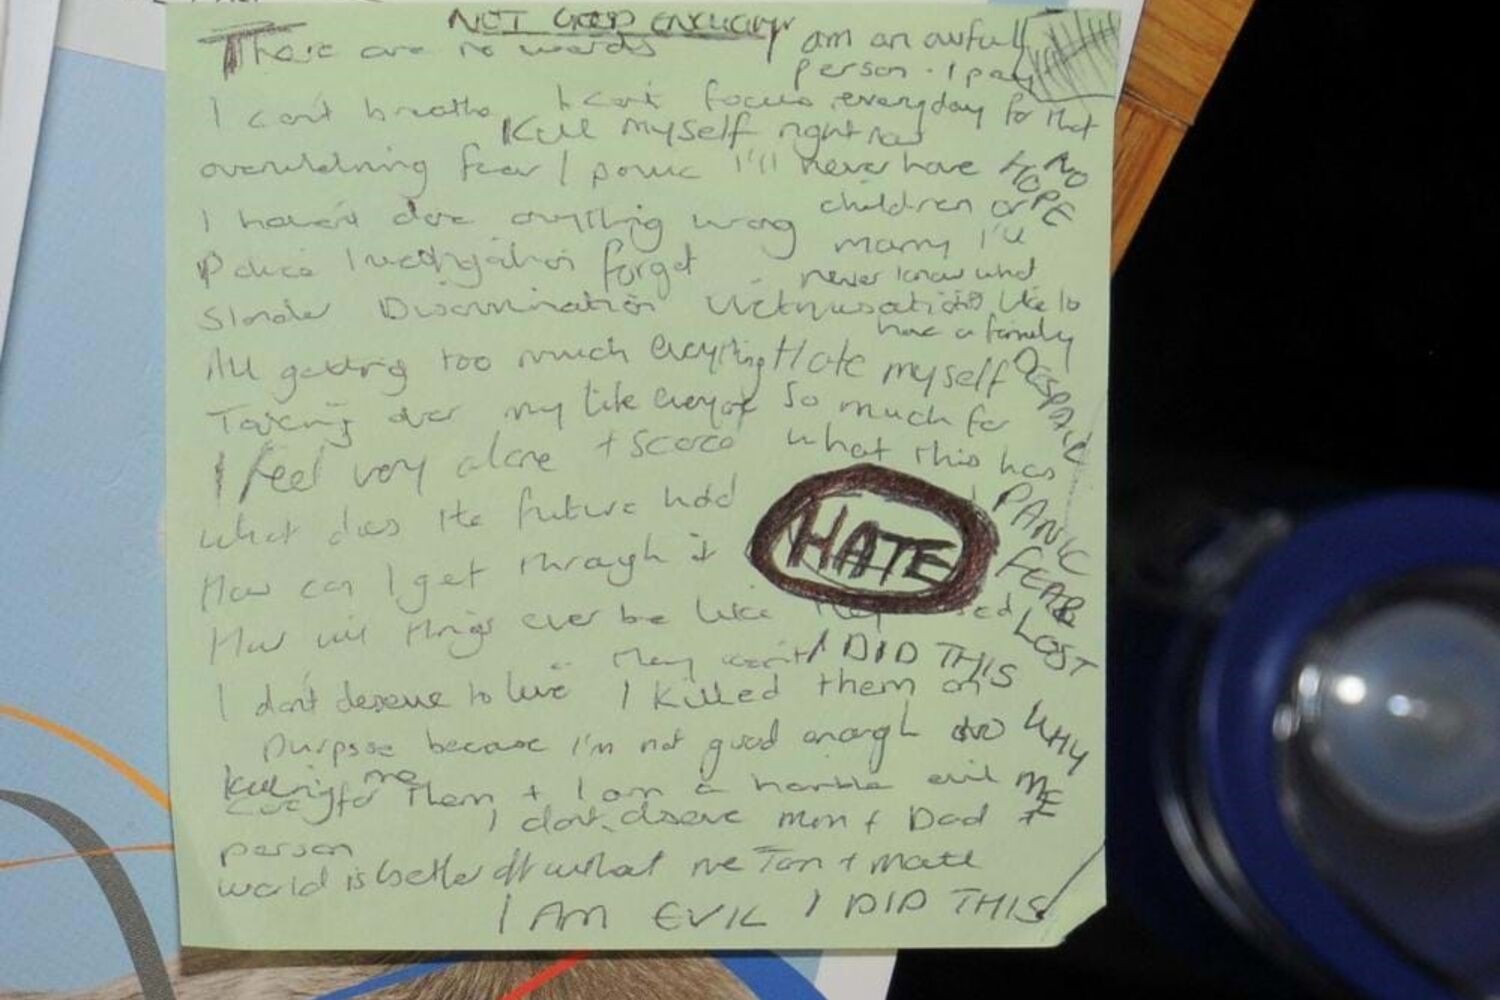 NOT GOOD ENOUGH
There are no words
I am an awful person. I pay everyday for that
I can't breathe I can't focus
Kill myself right now
overwhelming fear / panic I'll never have
children or marry I'll
never know what
it's like to
have a family
NO HOPE
I haven't done anything wrong
Police Investigation forget
Slander Discrimination Victimisation
All getting too much everything Hate myself
Taking over my life so much for
what this has
DESPAIR
I feel very alone + scared
What does the future hold
How can I get through it
HATE
PANIC
FEAR
LOST
How will things ever be like they used
they won't I DID THIS
I don't deserve to live I killed them on
purpose because I'm not good enough to
WHY ME
killing me
care for them + I am a horrible evil
person
I don't deserve Mum + Dad +
world is better off without me Tom + Matt
I AM EVIL I DID THIS